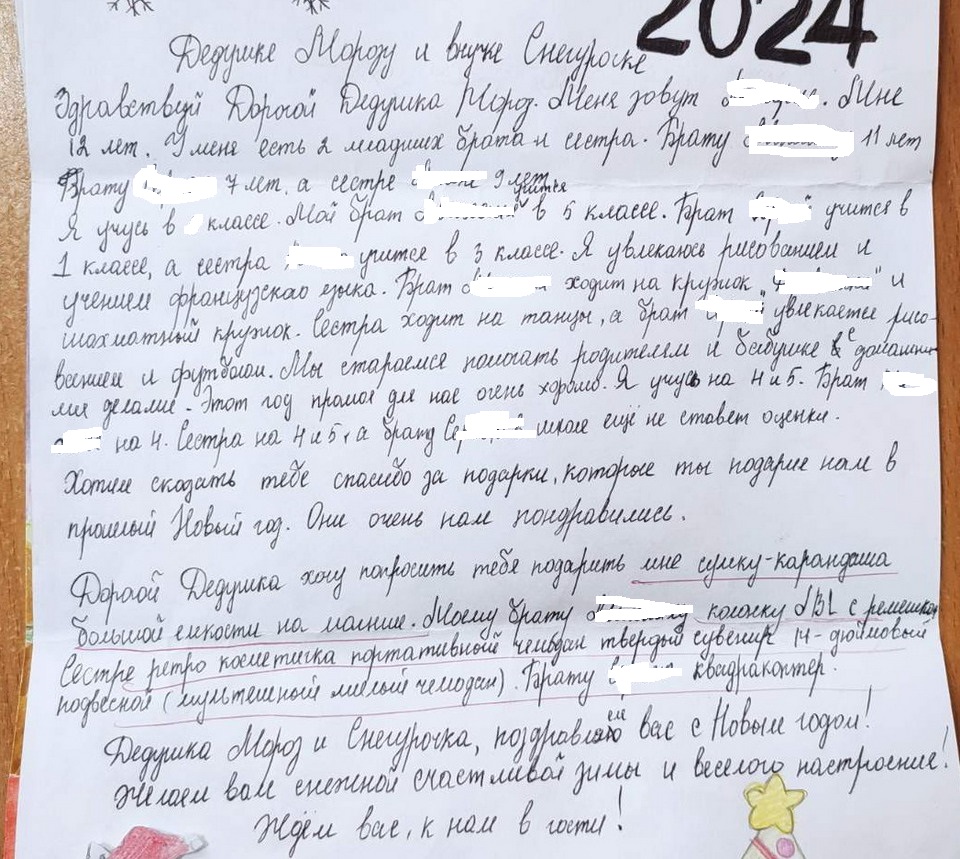 2024
Дедушке Морозу и внучке Снегуроске
Здравствуй Дорогой Дедушка Мороз. Меня зовут . Мне
12 лет. У меня есть 2 младших брата и сестра. Брату 11 лет
Брату 7 лет, а сестре 9 лет
учится
Я учусь в классе. Мой брат в 5 классе. Брат учится в
1 классе, а сестра учится в 3 классе. Я увлекаюсь рисованием и
учением французского языка. Брат ходит на кружок " " и
шахматный кружок. Сестра ходит на танцы, а брат увлекается рисо-
ванием и футболом. Мы стараемся помогать родителям и бабушке с домашни-
ми делами. Этот год прошол для нас очень хорошо. Я учусь на 4 и 5. Брат
на 4. Сестра на 4 и 5, а брату школе ещё не ставят оценки.
Хотим сказать тебе спасибо за подарки, которые ты подарил нам в
прошлый Новый год. Они очень нам пондравились.
Дорогой Дедушка хочу попросить тебя подарить мне сумку-карандаша
большой емкости на молнии. Моему брату с ремешком
Сестре ретро косметичка портативный чемодан твердый сувенир 14-дюймовый
подвесной (мультяшный милый чемодан). Брату квадракоптер.
Дедушка Мороз и Снегурочка, поздравляем вас с Новым годом!
Желаем вам снежной счастливой зимы и веселого настроение!
Ждём вас, к нам в гости!